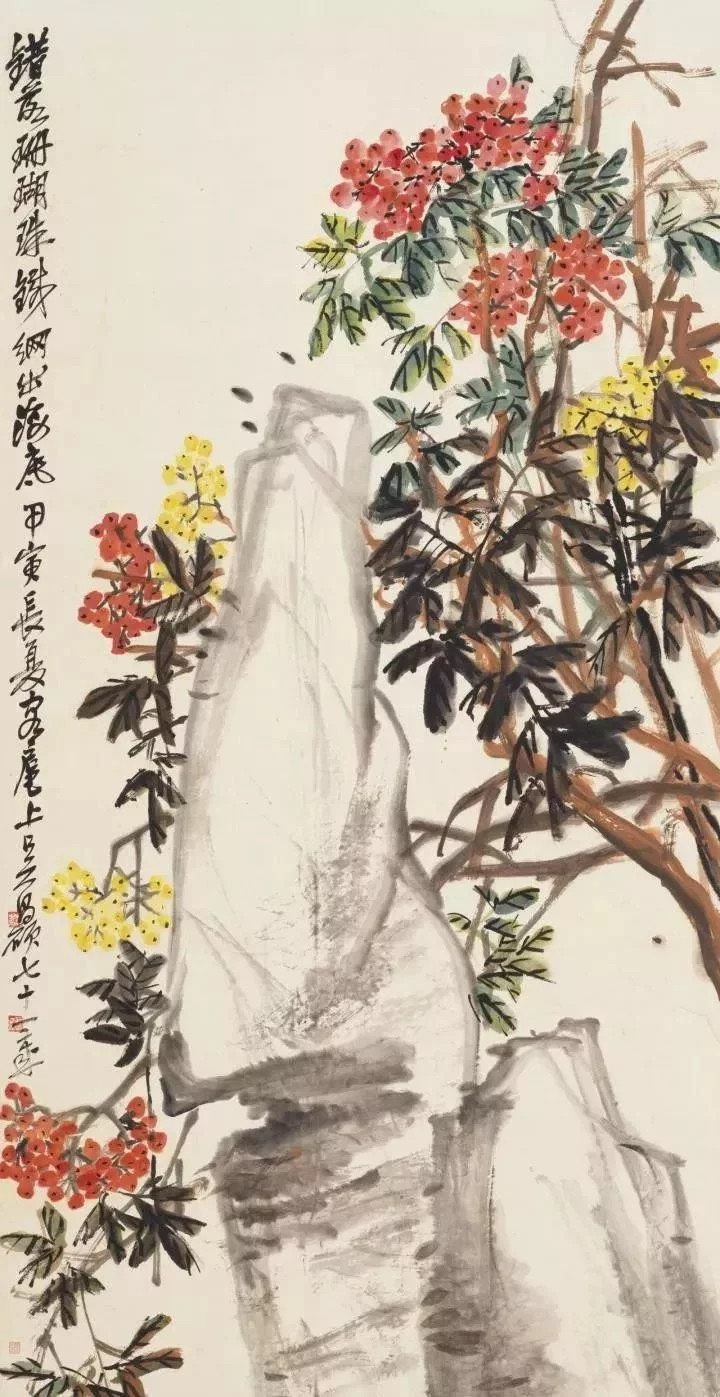 錯落珊瑚珠鐵網出海底甲寅長夏客扈上吳昌碩七十一季